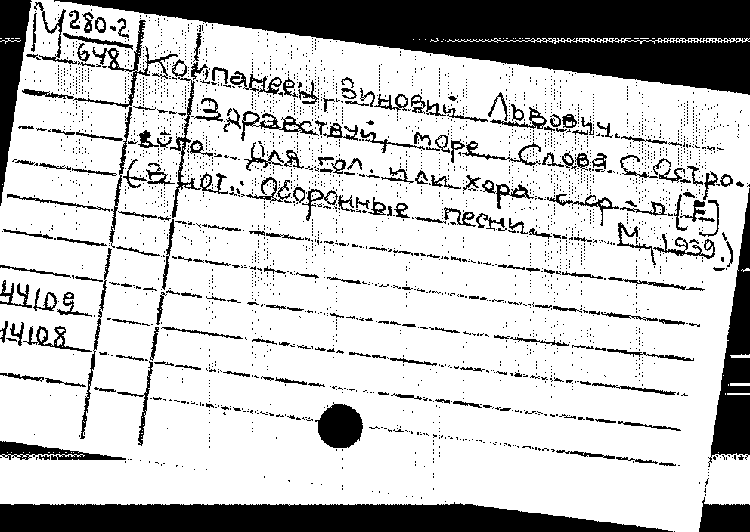 М 280-2
648
Компанеец, Зиновий Львович.
Здравствуй, море. Слова С. Остро-
вого. Для гол. или хора с ф-п [E]
(В нот.: Оборонные песни. М., 1939.)
44109
44108